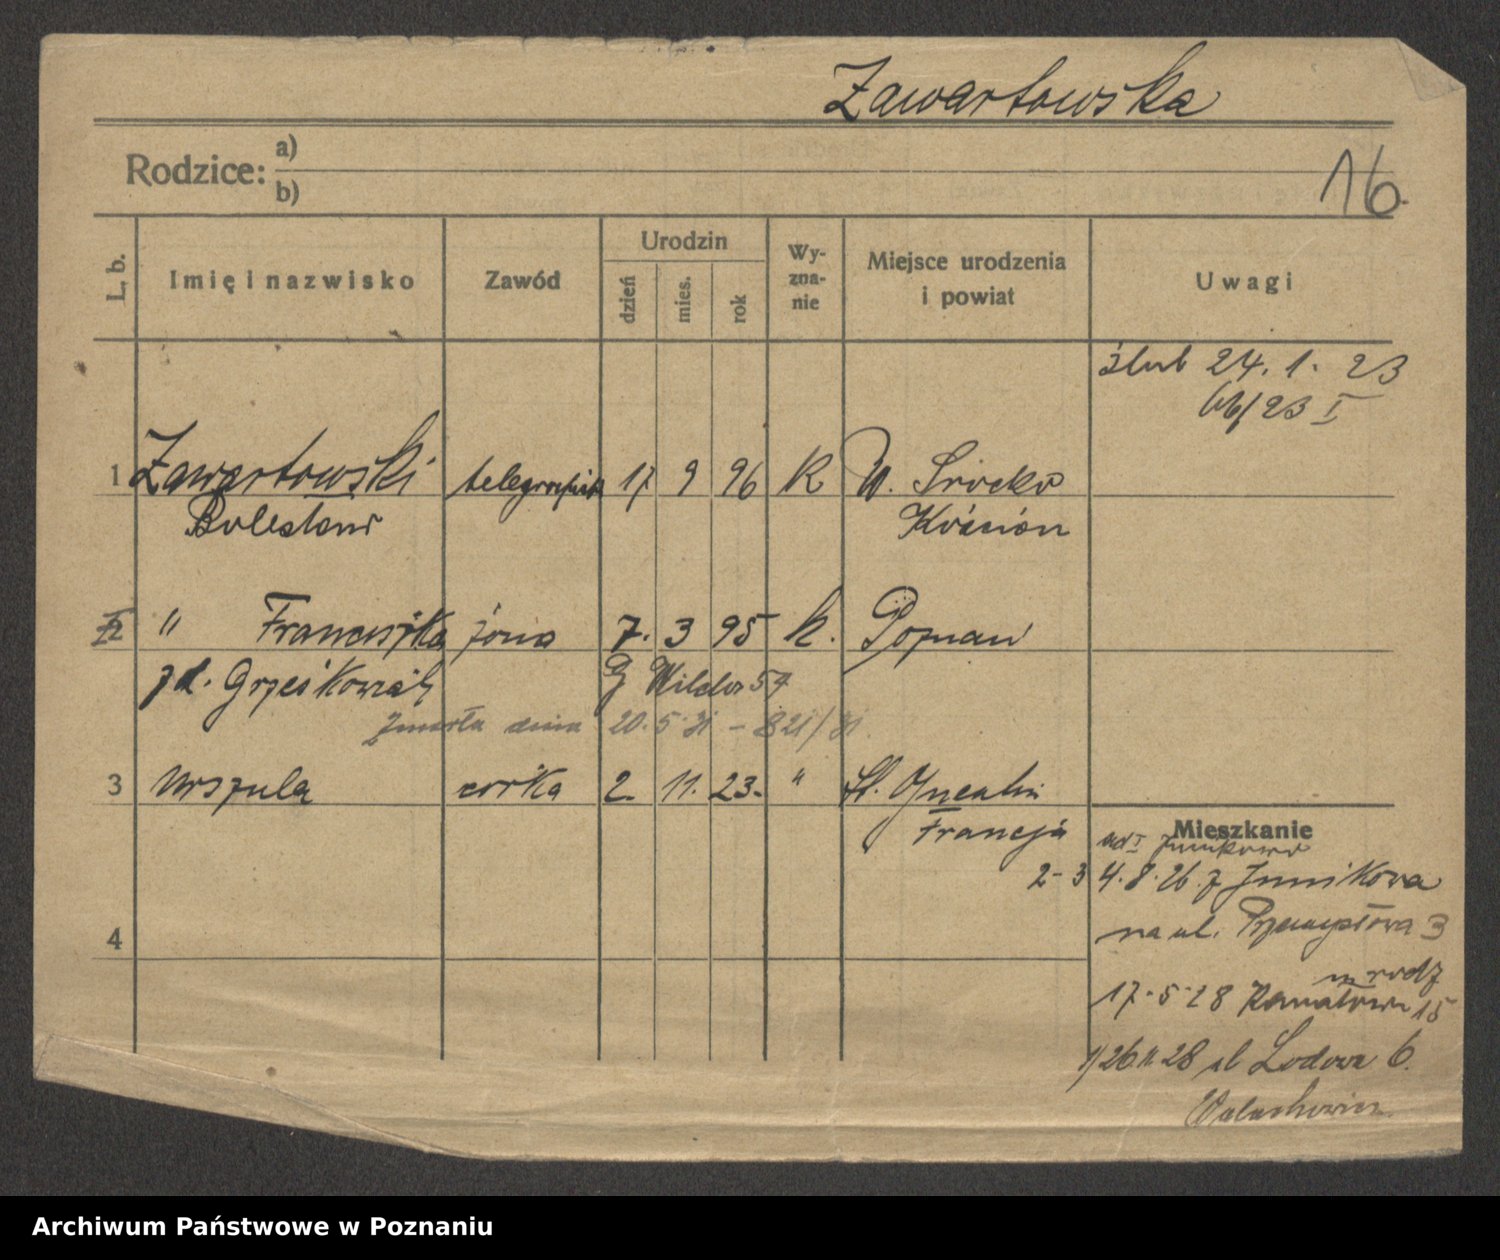 Zawartowska
Rodzice: a)
b)
16.
L. b.
Imię i nazwisko
Zawód
Urodzin
dzień
mies.
rok
Wy-
zna-
nie
Miejsce urodzenia
i powiat
Uwagi
ślub 24. 1. 23
66/23 I
1 Zawartowski telegrafista 17 9 96 K W. Srocko
Bolesław Kościan
2 " Franciszka żona 7. 3 95 k. Poznań
zd. Grześkowiak G Wilda 54
Zmarła dnia 20.5.31 - 821/31.
3 Urszula córka 2. 11. 23. " St.
Francja
Mieszkanie
Junikowo
2-3 4.8.26 z Junikowa
na ul. Przemysłowa 3
m rodz
17.5.28 15
1/26.11.28 ul Lodowa 6.
4
Archiwum Państwowe w Poznaniu